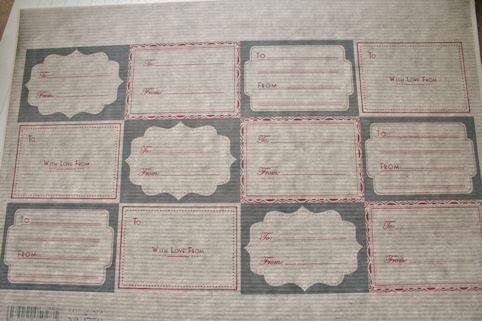 To:
From:
To:
From:
To:
From:
To:
With Love From
To:
With Love From
To:
From:
To:
From:
To:
From:
To:
From:
To:
With Love From
To:
From:
To:
From: